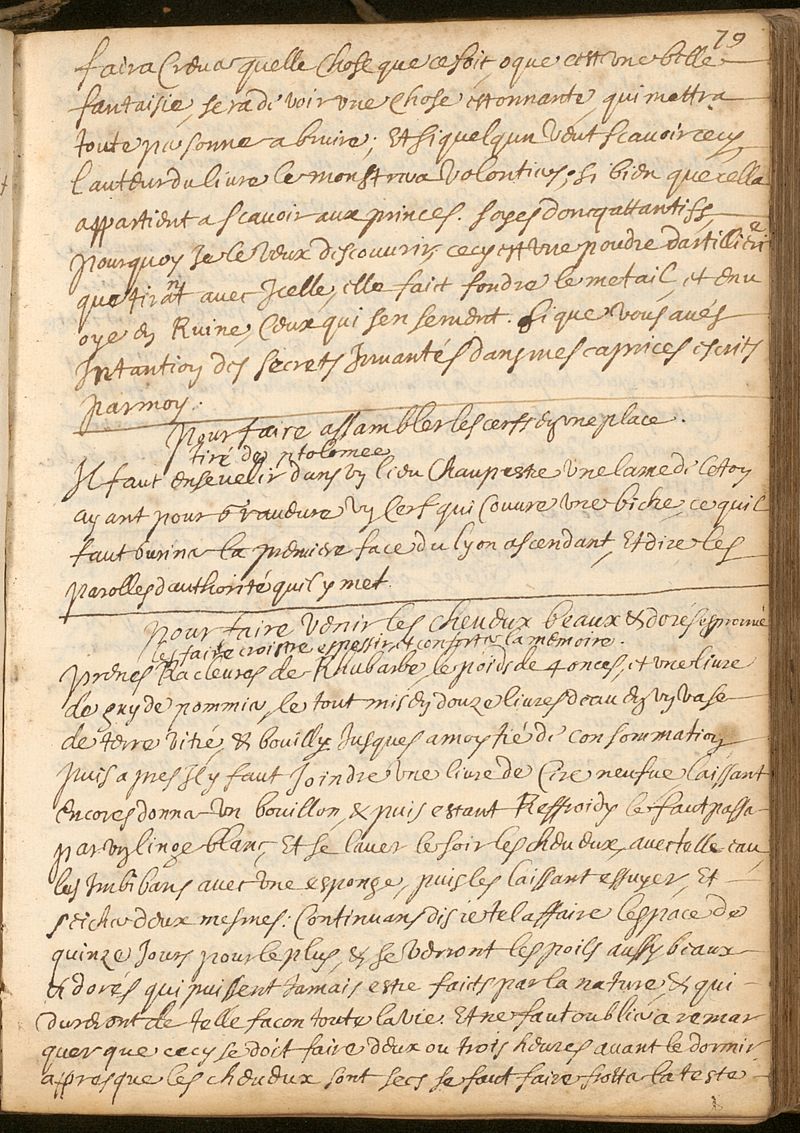 79
faira Creva quelle Chose que ce soit, o que c'est une belle
fantaisie, sera de voir une chose estonnante, qui mettra
toute personne a bruire; Et si quelqun veut scavoir cecy
l'auteur du livre le monstrera volontiers; si bien que cella
appartient a scavoir aux princes. soyes doncq attantifs,
pourquoy Je le veux descouvrir, cecy est une poudre dartillierie
que tirant avec Icelle, elle faict fondre le metail, et env
oye en Ruine, Ceux qui sen servent. Si que vous avés
Intantion des secrets Invantés dans mes caprices escrits
par moy.
Pour faire assambler les cerfs en une place.
tiré de ptolomee
Il faut ensevelir dans un lieu Champestre une lame de leton
ayant pour graveure un Cerf qui Couvre une biche, ce quil
faut buriner la premiere face du lyon ascendant, Et dire les
parolles d'authorité quil y met.
Pour faire venir les cheveux beaux & dorés esprouvé
les faire croistre espessir, et conforter la memoire.
prenes Racleures de Rhubarbe, le poids de 4 onces, et une livre
de guy de pommier, le tout mis en douze livres deau en un vase
de terre vitré, & bouilly Jusques a moytié de consommation
puis apres Il y faut Joindre une livre de Cire neufve laissant
encores donner un bouillon, & puis estant Reffroidy le faut passer
par un linge blanc, Et se laver le soir les cheveux, avec telle eau,
les Imbibans avec une esponge, puis les laissant essuyer, Et
seicher deux mesmes: Continuans dis ie tel affaire lespace de
quinze Jours pour le plus, & se verront les poils aussy beaux
et dorés qui puissent Jamais estre faicts par la nature, & qui
dureront de telle facon toute la vie. Et ne faut oublier a remar
quer que cecy se doit faire deux ou trois heures avant le dormir
apres que les cheveux sont secs se faut faire frotter la teste